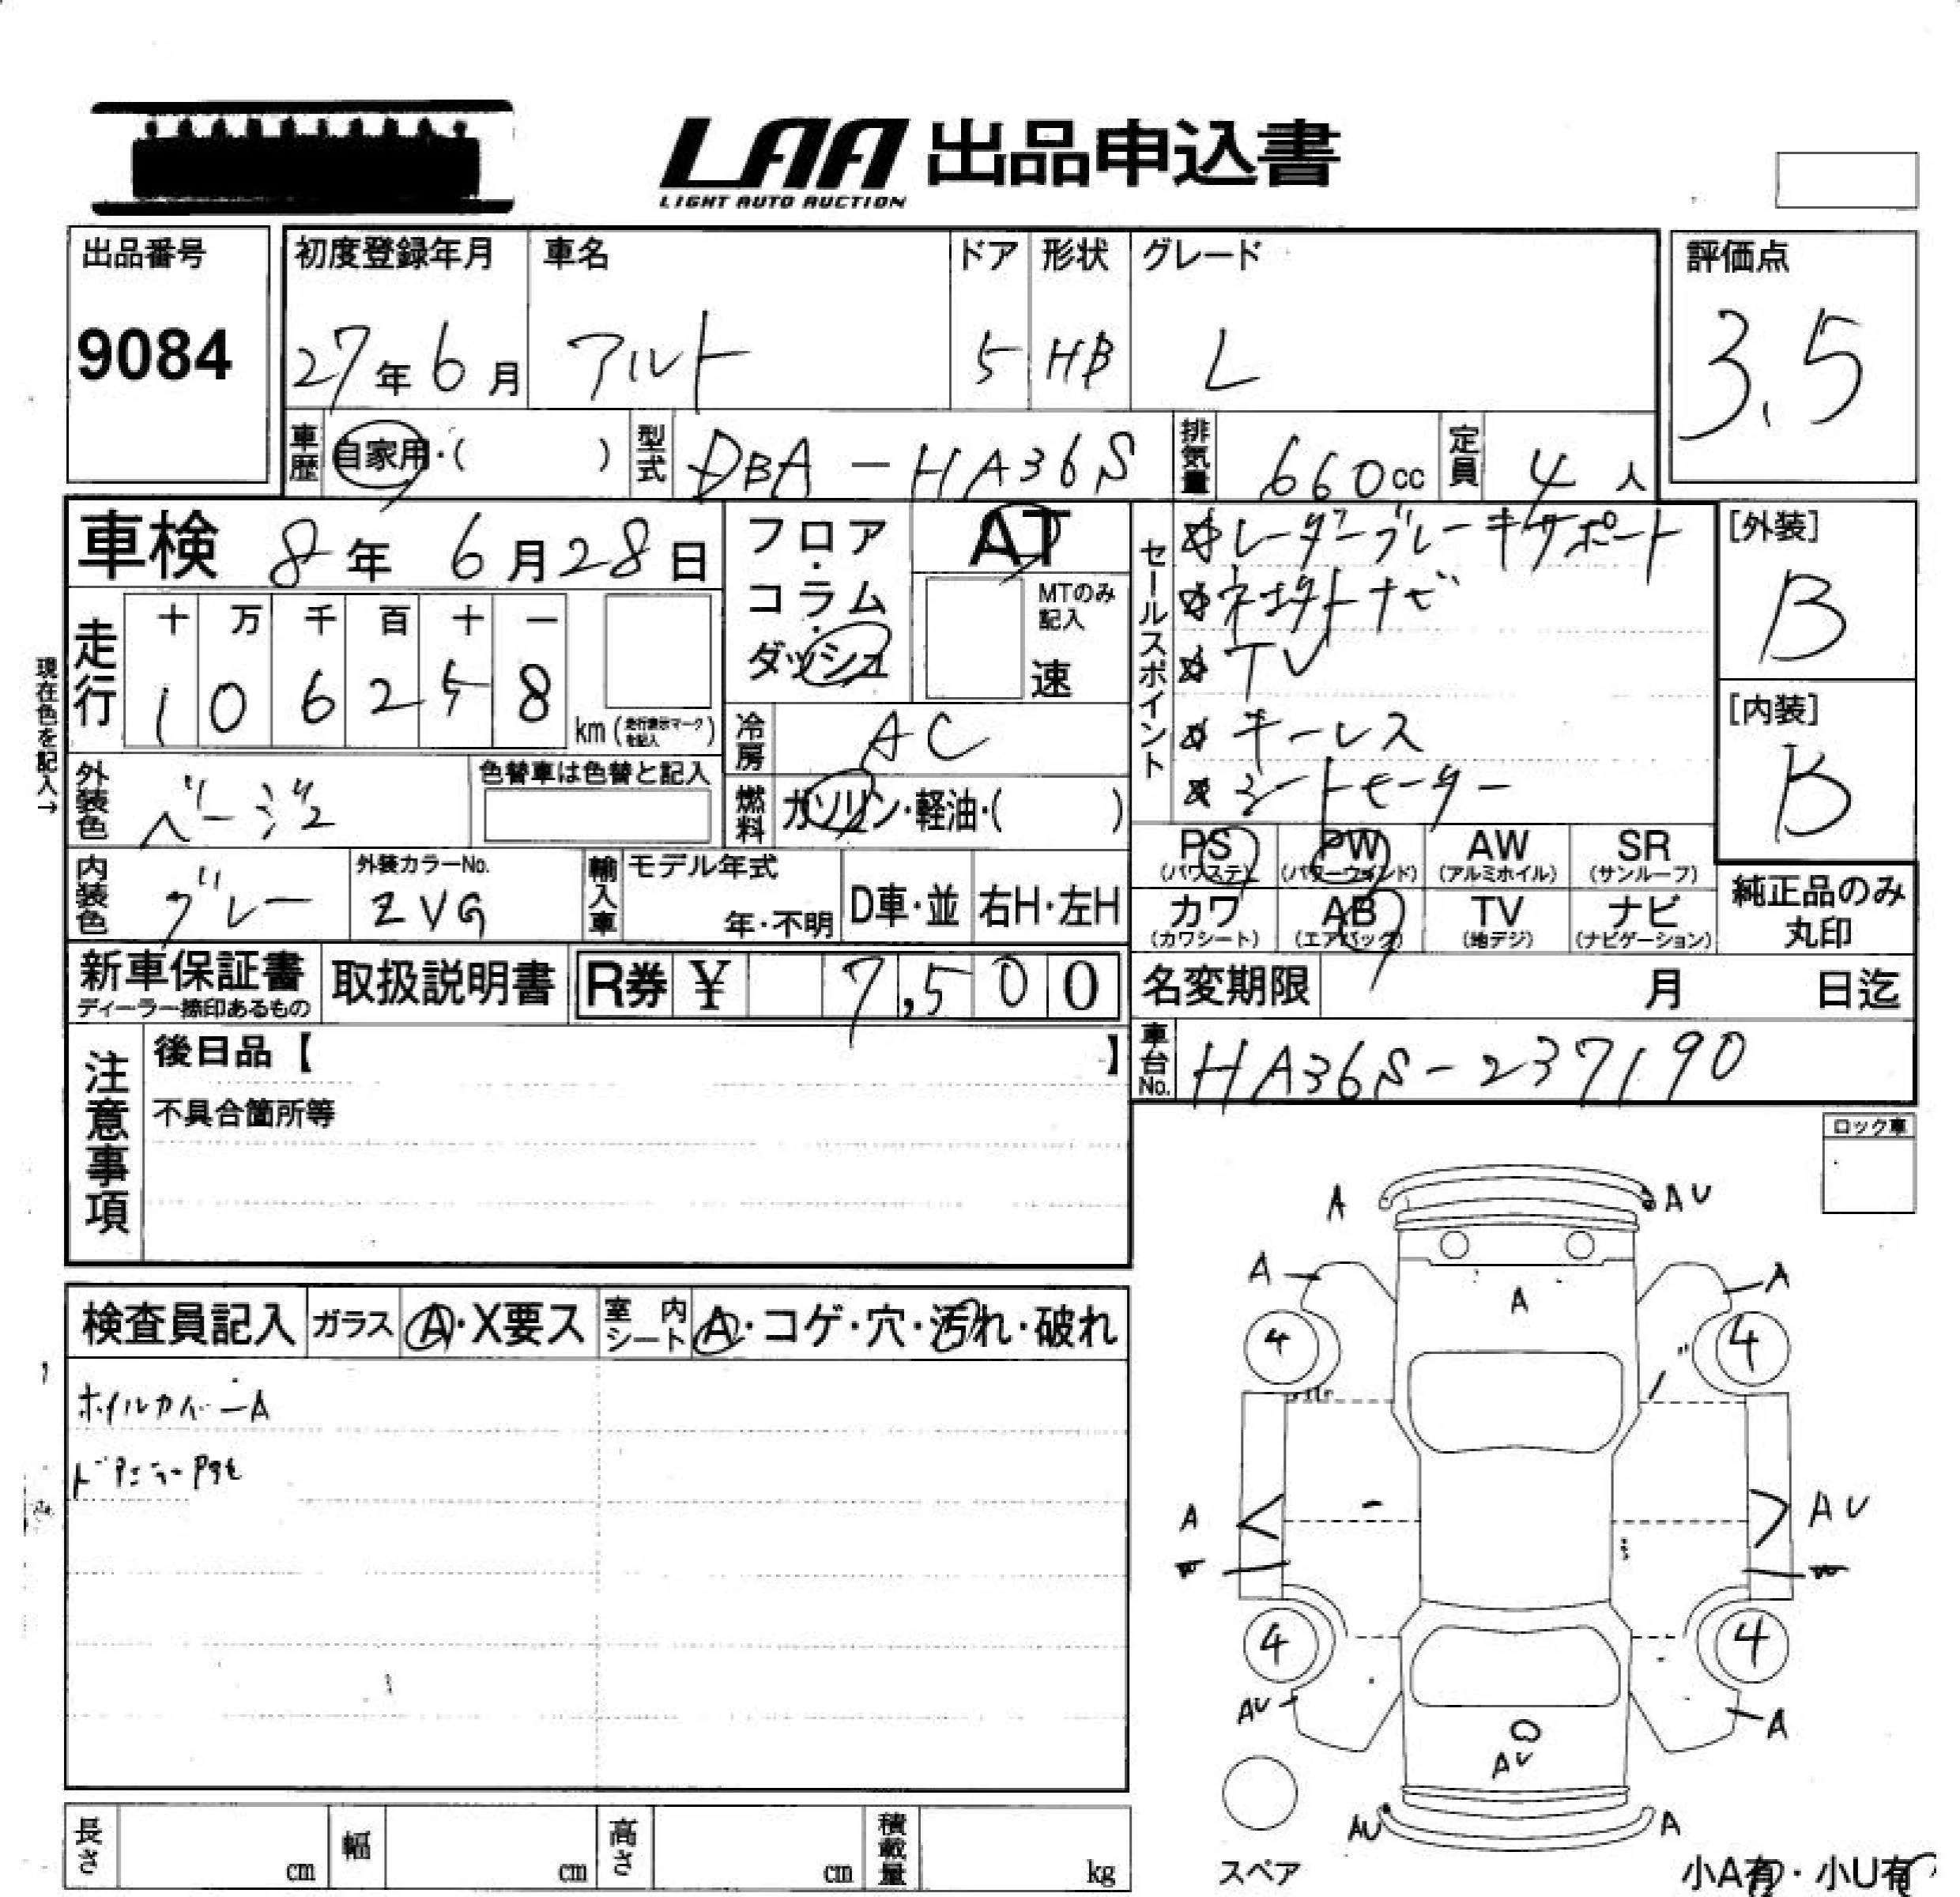 LAA 出品申込書
LIGHT AUTO AUCTION
出品番号
9084
初度登録年月
27年6月
車名
アルト
ドア
5
形状
HB
グレード
L
評価点
3.5
車歴
自家用・( )
型式
DBA-HA36S
排気量
660cc
定員
4人
車検 8年6月28日
フロア・コラム・ダッシュ
AT
MTのみ記入
速
セールスポイント
☆レーダーブレーキサポート
☆TV
☆キーレス
☆シートヒーター
[外装]
B
[内装]
B
現在色を記入→
走行
十 万 千 百 十 一
1 0 6 2 5 8
km(走行表示マークを記入)
冷房
AC
外装色
ベージュ
色替車は色替と記入
燃料
ガソリン・軽油・( )
PS (パワステ)
PW (パワーウィンド)
AW (アルミホイル)
SR (サンルーフ)
内装色
グレー
外装カラーNo.
ZVG
輸入車
モデル年式
年・不明
D車・並
右H・左H
カワ (カワシート)
AB (エアバッグ)
TV (地デジ)
ナビ (ナビゲーション)
純正品のみ丸印
新車保証書
ディーラー捺印あるもの
取扱説明書
R券 ¥ 7,500
名変期限 月 日迄
車台No.
HA36S-237190
注意事項
後日品【 】
不具合箇所等
ロック車
検査員記入
ガラス
A・X要ス
室内シート
A・コゲ・穴・汚れ・破れ
ホイルカバーA
A
AU
A
A
A
4
4
A
AU
W
W
4
4
AU
A
AU
AU
A
スペア
小A有・小U有
長さ cm
幅 cm
高さ cm
積載量 kg